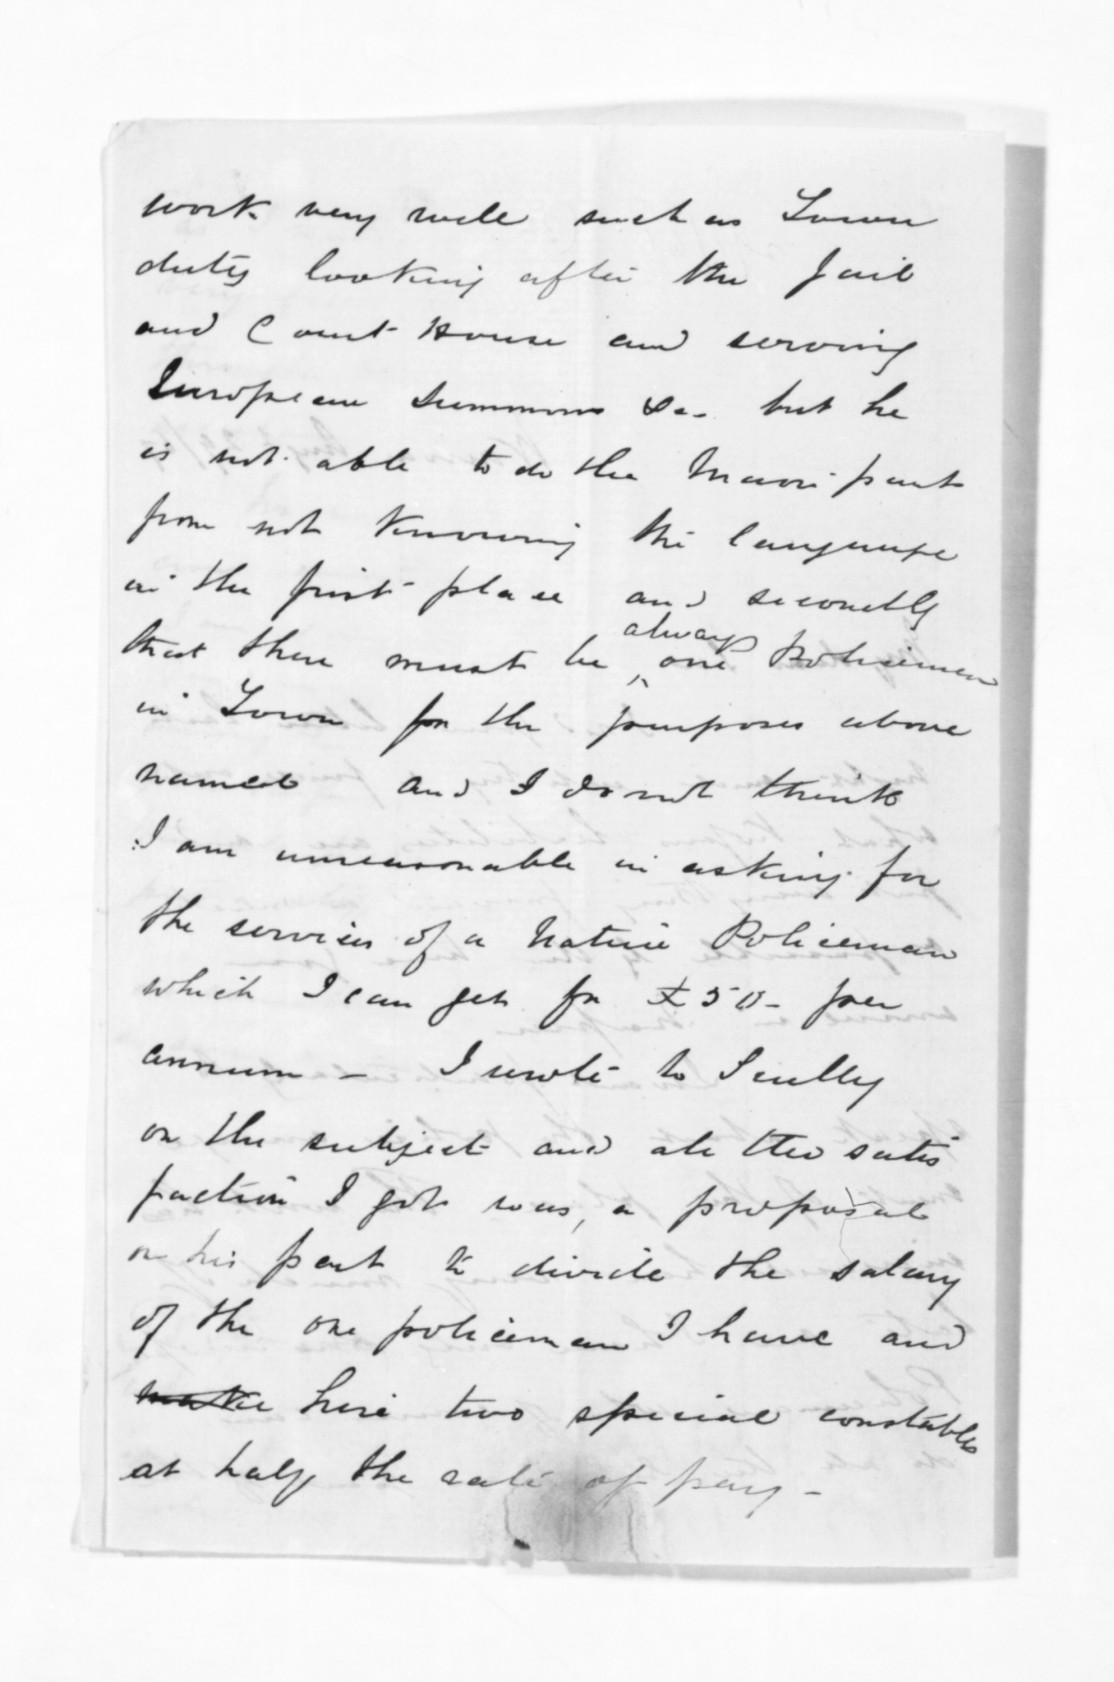 work very well such as Town
duty looking after the Jail
and Court House and serving
European Summons &c. but he
is not able to do the Maori part
from not knowing the language
in the first place and secondly
that there must be always one Policeman
in Town for the purposes above
named and I do not think
I am unreasonable in asking for
the services of a Native Policeman
which I can get for £50- per
annum - I wrote to Scully
on the subject and all the satis
faction I got was, a proposal
on his part to divide the salary
of the one policeman I have and
make hire two special constables
at half the rate of pay -